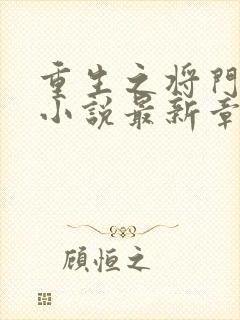 重生之将門
小說最新章
顧恒之